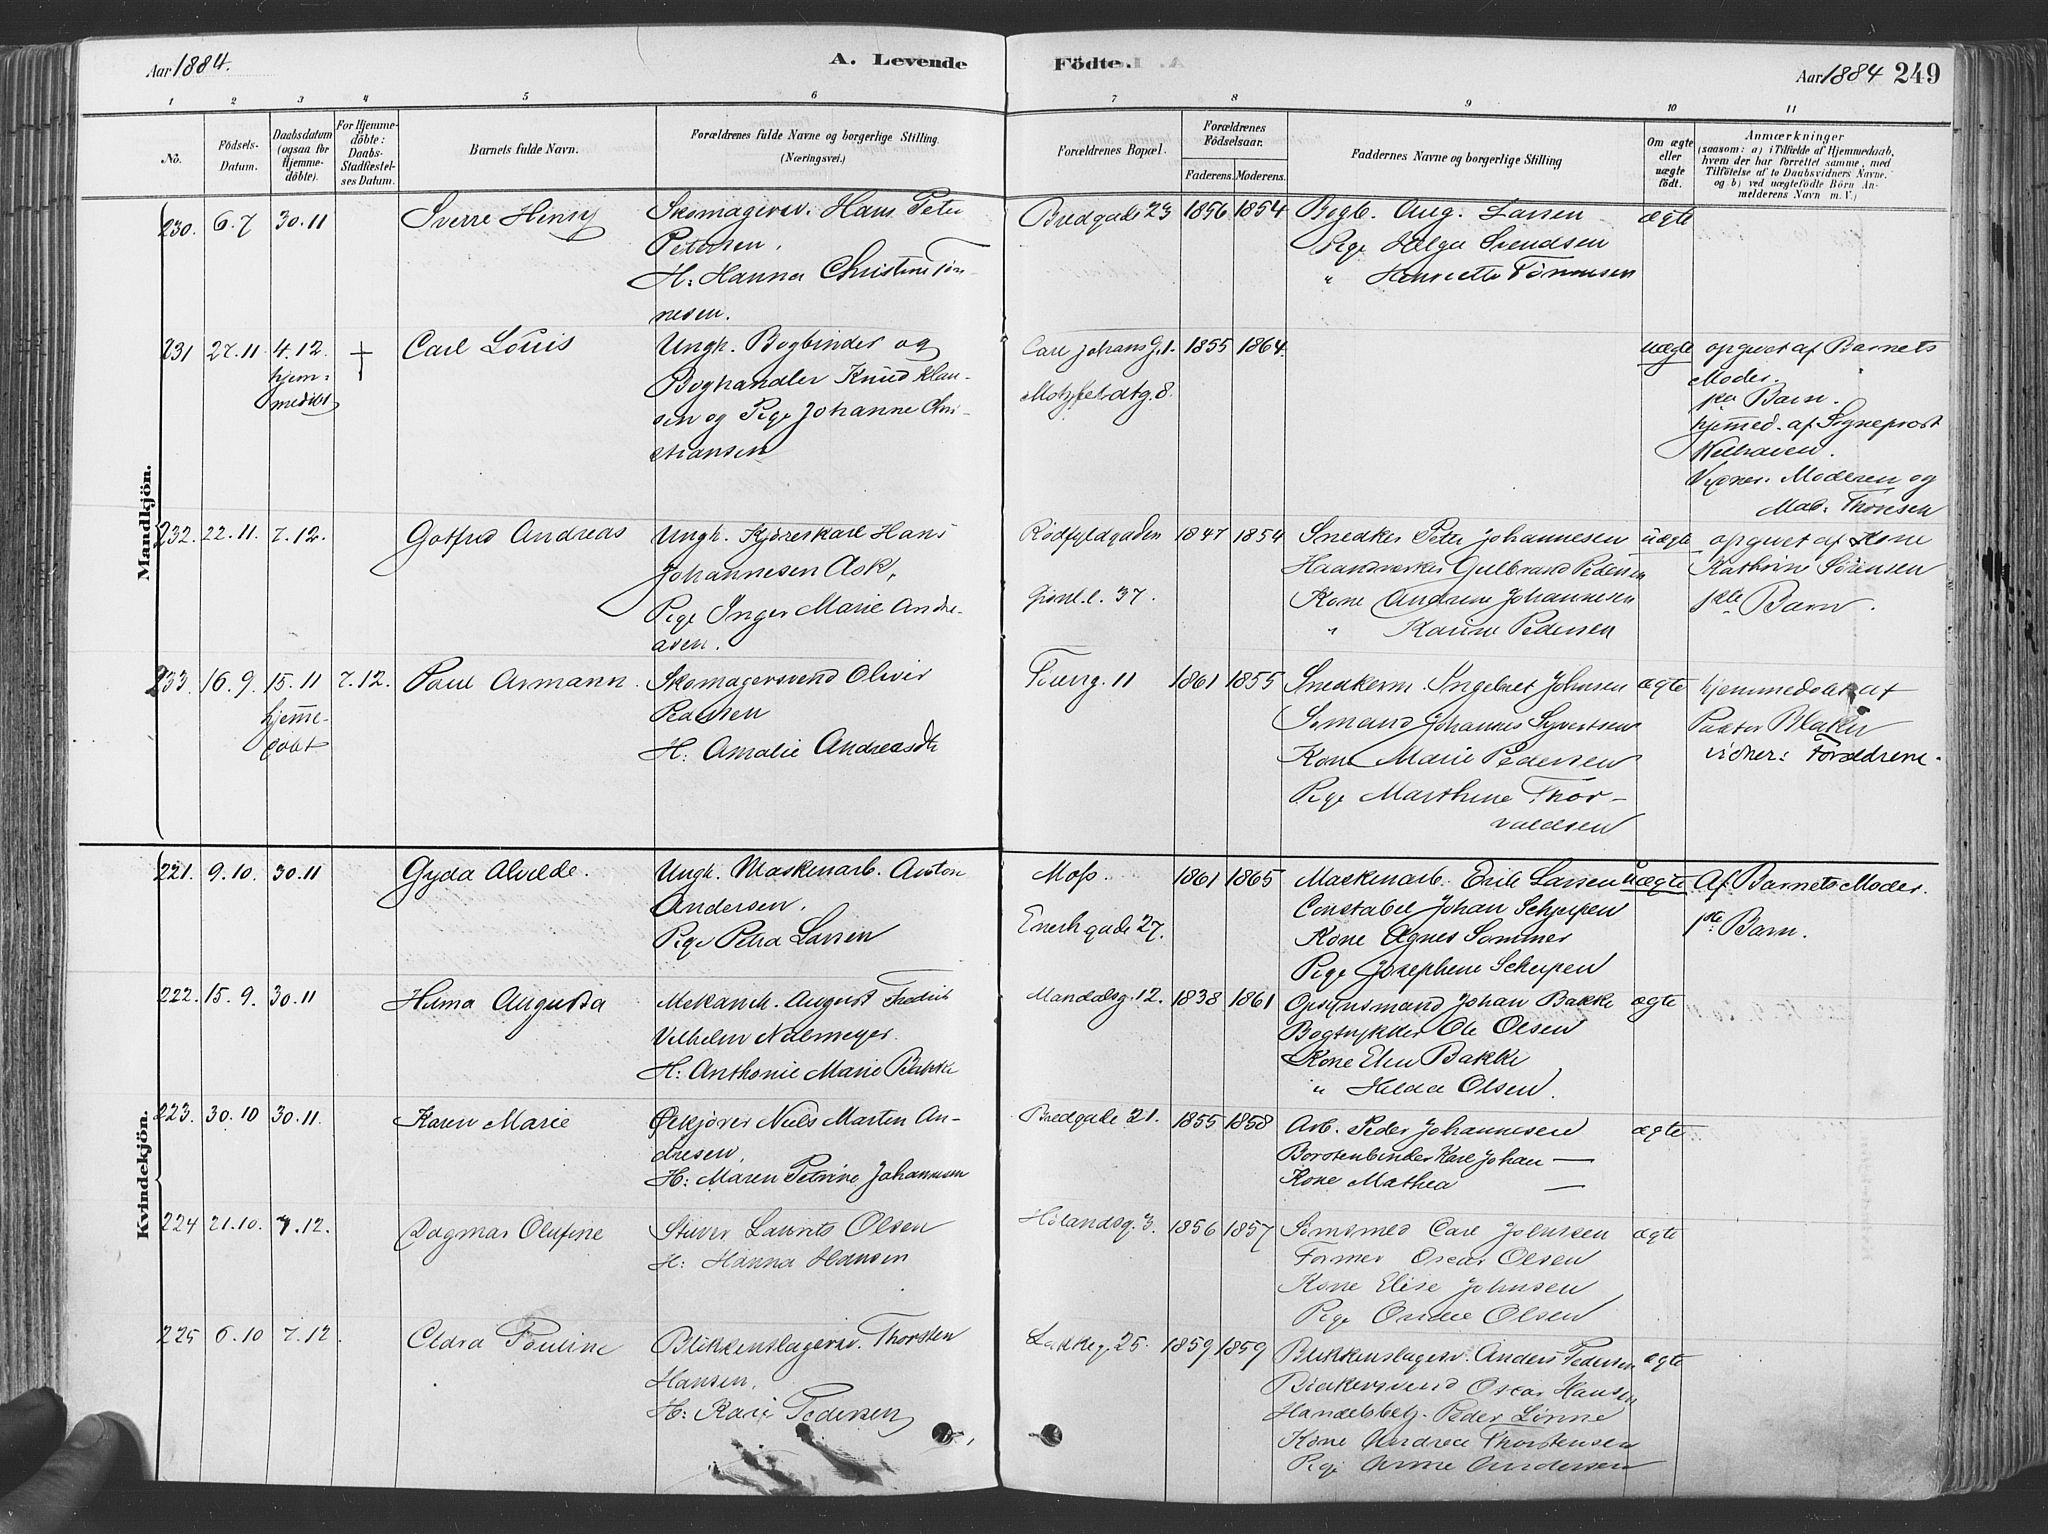 Aar 1884.
A. Levende
Födte.
Aar 1884 249
1 2 3 4 5 6 7 8 9 10 11
No.
Födsels-
Datum.
Daabsdatum
(ogsaa for
Hjemme-
döbte).
For Hjemme-
döbte:
Daabs-
Stadfæstel-
ses Datum.
Barnets fulde Navn.
Forældrenes fulde Navne og borgerlige Stilling
(Næringsvei.)
Forældrenes Bopæl.
Forældrenes
Födselsaar.
Faderens. Moderens.
Faddernes Navne og borgerlige Stilling
Om ægte
eller
uægte
födt.
Anmærkninger
(saasom: a) i Tilfælde af Hjemmedaab,
hvem der har forrettet samme, med
Tilföielse af to Daabsvidners Navne.
og b) ved uægtefödte Börn An-
melderens Navn m. V.)
Mandkjön.
230. 6.7 30.11
Sverre Henry
Skomagersv. Hans Peter
Petersen.
H: Hanna Christine Tön-
nesen.
Bredgade 23
1856 1854
Bogb. Aug. Larsen
Pige Helga Svendsen
" Henriette Tönnesen
ægte
231 27.11 4.12 +
hjem-
medøbt
Carl Louis
Ungk. Bogbinder og
Boghandler Knud Klau-
sen og Pige Johanne Chri-
stiansen
Carl Johans G. 1.
Motzfeldtg. 8.
1855 1864
uægte
opgivet af Barnets
Moder.
Barn.
hjemmed. af Sogneprest
Vidner: Moderen og
Mad. Thoresen
232. 22.11 7.12.
Gotfred Andreas
Ungk. Kjöreskarl Hans
Johannesen Ask,
Pige Inger Marie Andre-
asen.
Rödfyldgaden
Grönl. l. 37.
1847 1854
Snedker Peter Johannesen
Haandverker Gulbrand Pedersen
Kone Andrine Johannesen
" Karine Pedersen
uægte
opgivet af Kone
Kathrine Sörensen
Barn.
233. 16.9 15.11 7.12.
hjemme-
döbt
Paul Armann.
Skomagersvend Oliver
Pedersen
H. Amalie Andreasdt
Tverrg. 11
1861 1855
Snedkerm. Ingebret Johnsen
Sömand Johannes Syvertsen
Kone Marie Pedersen
Pige Marthine Thor-
valdsen
ægte
hjemmedöbt af
Pastor
vidner: Forældrene.
Kvindekjön.
221. 9.10. 30.11
Gyda Alvilde.
Ungk. Maskinarb. Anton
Andersen.
Pige Petra Larsen
Moss.
Enerhgade 27.
1861 1865
Maskinarb. Erik Larsen
Constabel Johan Scheipen
Kone Agnes Sommer
Pige Josephine Scheipen
uægte
Af Barnets Moder.
1ste Barn.
222. 15.9. 30.11
Hilma Augusta
Mekanik. August Fredrik
Vilhelm Nulmeyer.
H. Anthonie Marie Bakke
Mandalsg. 12.
1838 1861
Opsynsmand Johan Bakke
Bogtrykker Ole Olsen
Kone Elen Bakke
" Hilda Olsen.
ægte
223. 30.10 30.11
Karen Marie
Ölkjörer Niels Martin An-
dresen,
H: Maren Petrine Johannesen
Bredgade 21.
1855 1858
Arb. Peder Johannesen
Borstenbinder Karl Johan —
Kone Mathea —
ægte
224 21.10. 7.12.
Dagmar Olufine
Stuer Laurits Olsen
H: Hanna Hansen
Hölandsg. 3.
1856 1857
Sömsmed Carl Johnsen
Former Oscar Olsen
Kone Elise Johnsen
Pige Olsen
ægte
225 6.10 7.12
Clara Pouline
Blikkenslagersv. Thorsten
Hansen.
H: Kari Pedersen
Lakkeg. 25.
1859 1859
Blikkenslagersv. Anders Pedersen
Oscar Hansen
Handelsbetj. Peder Lönne
Kone Andrea Thorstensen
Pige Anne Andersen
ægte